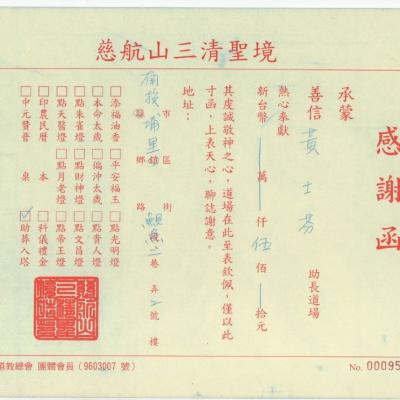 慈航山三清聖境
感謝函
承蒙
善信 黃士芬 助長道場
熱心奉獻
新台幣 萬 仟 伍 佰 拾元
其虔誠敬神之心，道場在此至表欽佩，僅以此
寸函，上表天心，聊誌謝意。
地址：
南投 縣 埔里 市鎮鄉區 街路 鯉魚 段 二 巷 弄 2 號 樓
□添福油香 □平安福玉 □點光明燈
□本命太歲 □偏沖太歲 □點貴人燈
□點朱雀燈 □點財神燈 □點文昌燈
□點天醫燈 □點月老燈 □點帝王燈
□印農民曆 本 □科儀禮金
□中元贊普 桌 ☑助葬入塔
道教總會 團體會員 (9603007 號)
No. 00095